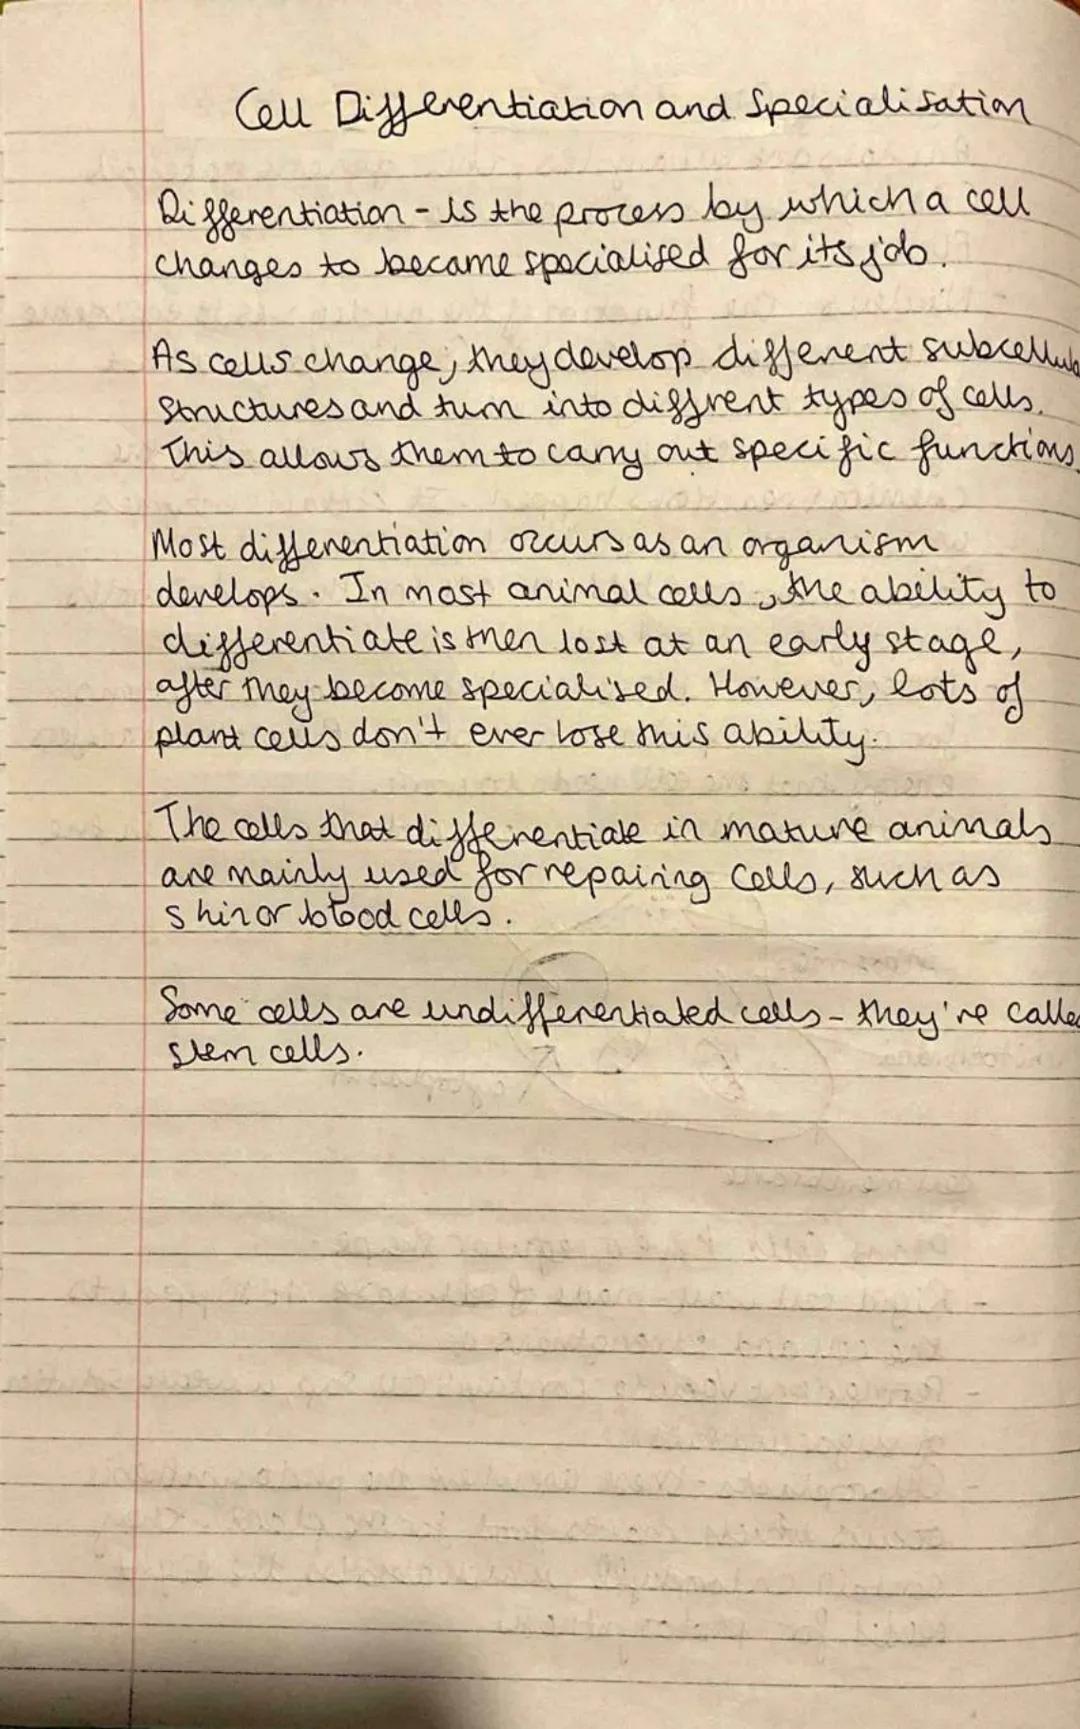 Cell Differentiation and Specialisation
Differentiation - is the process by which a cell
changes to become specialised for its job.
As cells change, they develop different subcellula
structures and turn into diffrent types of cells.
This allows them to carry out specific functions.
Most differentiation occurs as an organism
develops. In most animal cells, the ability to
differentiate is then lost at an early stage,
after they become specialised. However, lots of
plant cells don't ever lose this ability.
The cells that differentiate in mature animals
are mainly used for repairing cells, such as
skin or blood cells.
Some cells are undifferentiated cells - they're calle
stem cells.